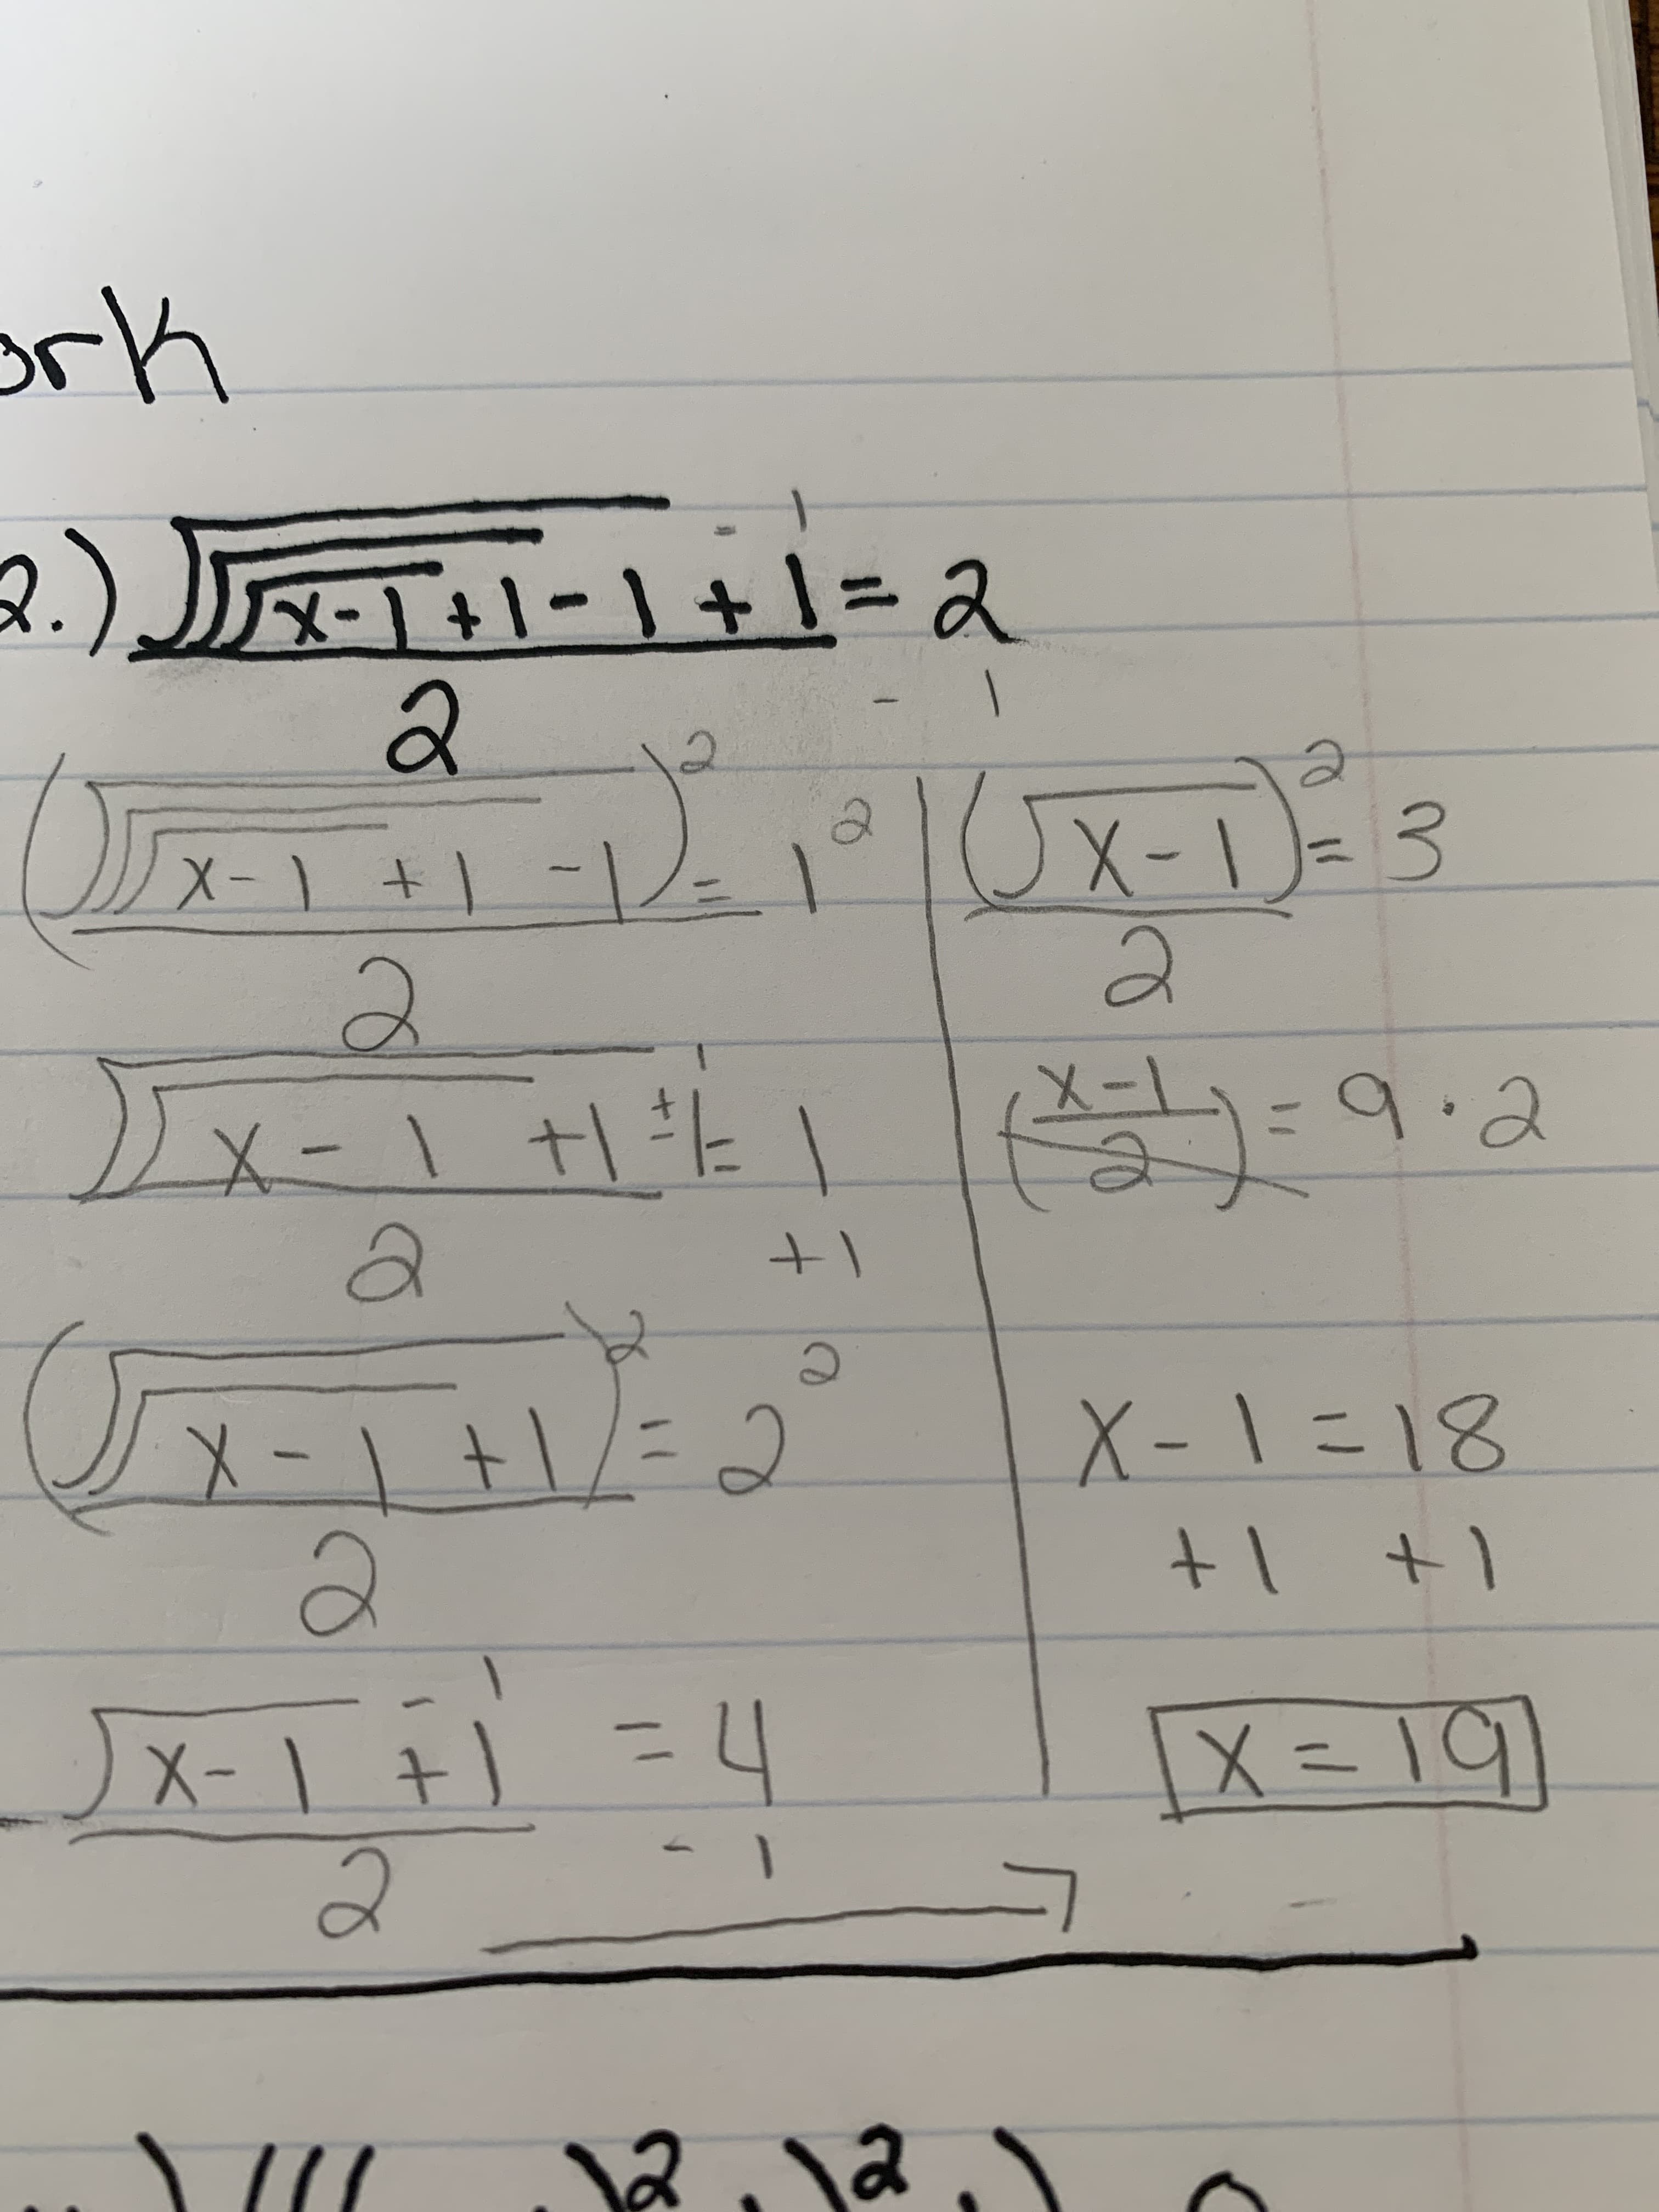 ork
2.) √√√x-1 +1 -1 +1 = 2
- 1
2
- 1
(√√√x-1 +1 -1)² = 1²
2
√√x - 1 +1 - 1 = 1
+ 1
2
+1
(√√x - 1 +1)² = 2²
2
√x-1 +1 = 4
- 1
2
- 1
(√x-1)² = 3
2
(x-1
2) = 9 · 2
x - 1 = 18
+1 +1
x = 19